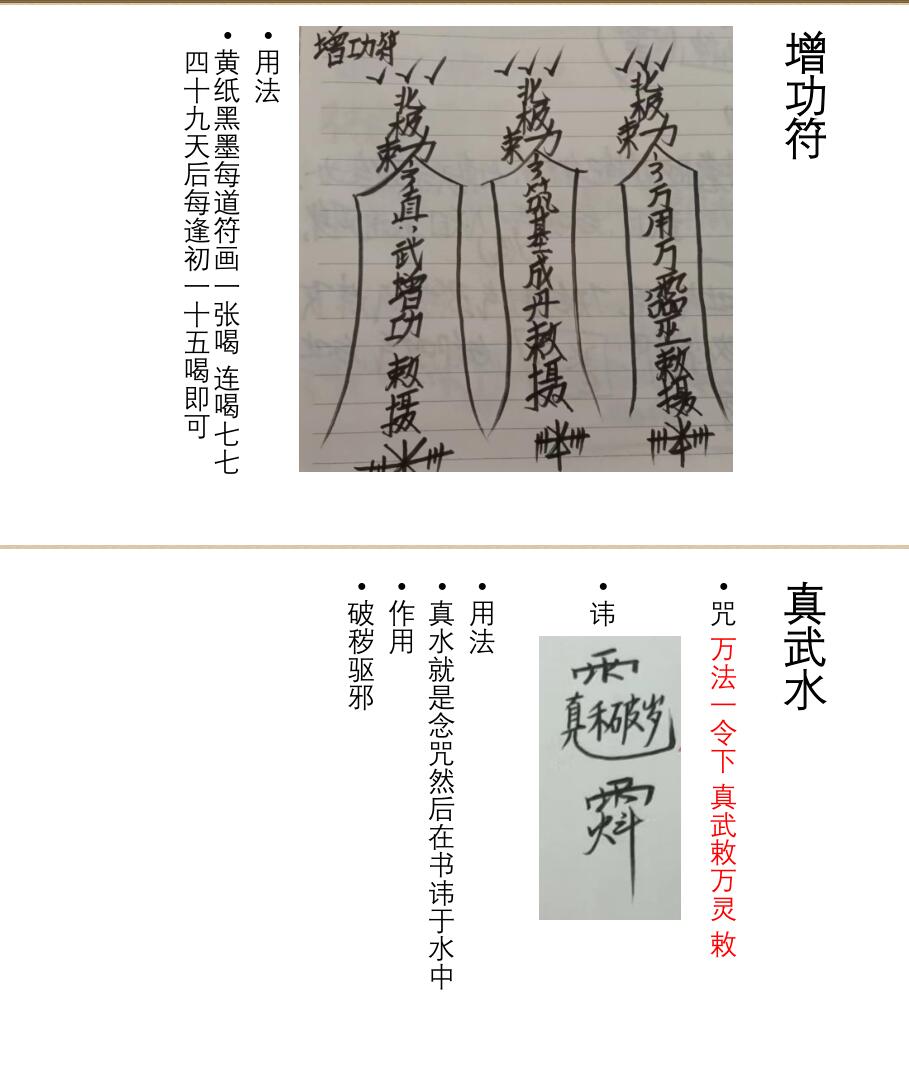 增功符
增功符
北极
敕令万用万灵巫敕摄
北极
敕令筑基成丹敕摄
北极
敕令真武增功敕摄
•用法
•黄纸黑墨每道符画一张喝 连喝七七
四十九天后每逢初一十五喝即可
真武水
•咒 万法一令下 真武敕万灵 敕
•讳
•用法
•真水就是念咒然后在书讳于水中
•作用
•破秽驱邪